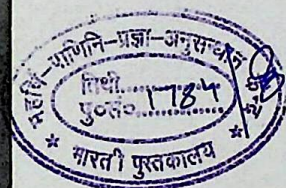 महर्षि-पाणिनि-प्रज्ञा-अनुसन्धान
तिथी..............
पु०सं०.1784
* भारती पुस्तकालय *